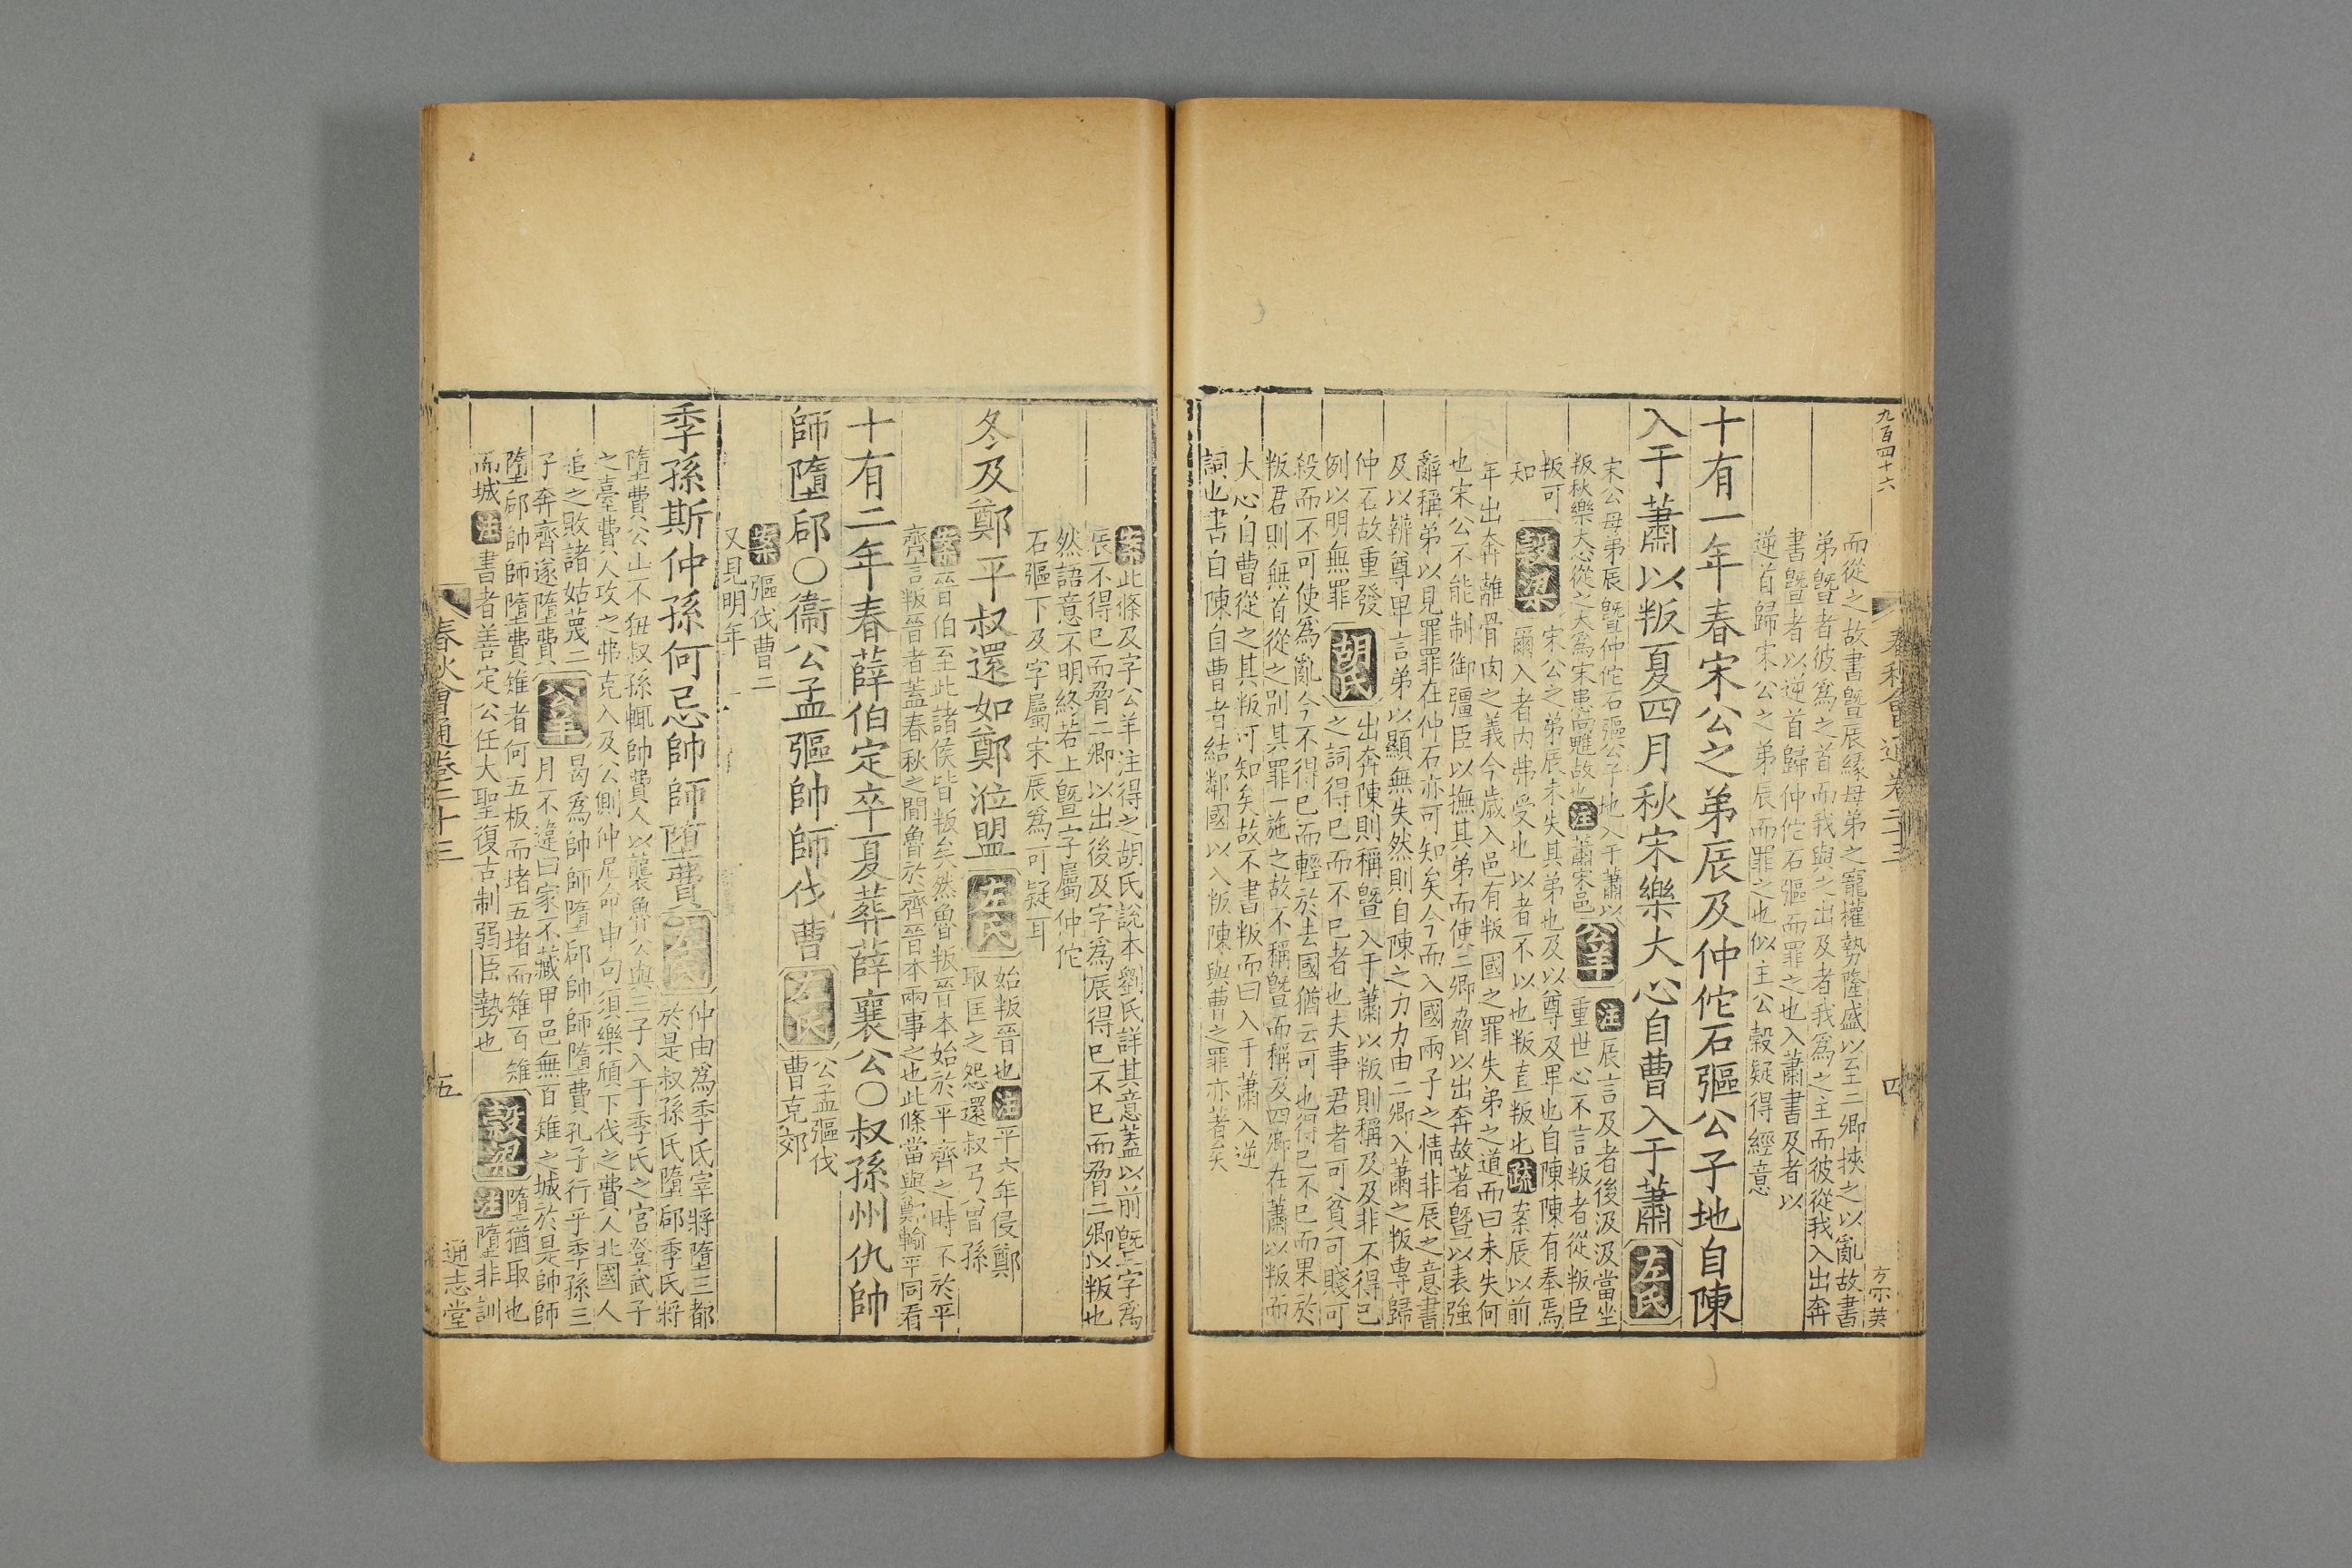 九百四十六
春秋會通卷二十三
四
方宗英
而從之故書曁辰縁母弟之寵權勢隆盛以至二卿挾之以亂故書
弟曁者彼爲之首而我與之出及者我爲之主而彼從我入出奔
書曁者以逆首歸仲佗石彄而罪之也入蕭書及者以
逆首歸宋公之弟辰而罪之也似主公穀疑得經意
十有一年春宋公之弟辰及仲佗石彄公子地自陳
入于蕭以叛夏四月秋宋樂大心自曹入于蕭左氏
宋公母弟辰曁仲佗石彄公子地入于蕭以
叛秋樂大心從之大爲宋患寵向魋故也注蕭宋邑公羊
注辰言及者後汲汲當坐
重世心不言叛者從叛臣
叛可
知穀梁宋公之弟辰未失其弟也及以尊及卑也自陳陳有奉焉
爾入者内弗受也以者不以也叛直叛也疏案辰以前
年出奔離骨肉之義今歳入邑有叛國之罪失弟之道而曰未失何
也宋公不能制御彊臣以撫其弟而使二卿脅以出奔故著曁以表強
辭稱弟以見罪罪在仲石亦可知矣今而入國兩子之情非辰之意書
及以辨尊卑言弟以顯無失然則自陳之力力由二卿入蕭之叛專歸
仲石故重發
例以明無罪胡氏出奔陳則稱曁入于蕭以叛則稱及及非不得已
之詞得已而不已者也夫事君者可貧可賤可
殺而不可使爲亂今不得已而輕於去國猶云可也得已不已而果於
叛君則無首從之别其罪一施之故不稱曁而稱及四卿在蕭以叛而
大心自曹從之其叛可知矣故不書叛而曰入于蕭入逆
詞也書自陳自曹者結鄰國以入叛陳與曹之罪亦著矣
案此條及字公羊注得之胡氏說本劉氏詳其意蓋以前曁字爲
辰不得已而脅二卿以出後及字爲辰得已不已而脅二卿以叛也
然語意不明終若上曁字屬仲佗
石彄下及字屬宋辰爲可疑耳
冬及鄭平叔還如鄭涖盟左氏始叛晉也注平六年侵鄭
取匡之怨還叔弓曾孫
案晉伯至此諸侯皆叛矣然魯叛晉本始於平齊之時不於平
齊言叛晉者蓋春秋之間魯於齊晉本兩事之也此條當與鄭輸平同看
十有二年春薛伯定卒夏葬薛襄公〇叔孫州仇帥
師墮郈〇衞公孟彄帥師伐曹左氏公孟彄伐
曹克郊
案彄伐曹二
又見明年
季孫斯仲孫何忌帥師墮費左氏仲由爲季氏宰將墮三都
於是叔孫氏墮郈季氏將
墮費公山不狃叔孫輒帥費人以襲魯公與三子入于季氏之宫登武子
之臺費人攻之弗克入及公側仲尼命申句須樂頎下伐之費人北國人
追之敗諸姑蔑二
子奔齊遂墮費公羊曷爲帥師墮郈帥師墮費孔子行乎季孫三
月不違曰家不藏甲邑無百雉之城於是帥師
墮郈帥師墮費雉者何五板而堵五堵而雉百雉
而城注書者善定公任大聖復古制弱臣勢也穀梁墮猶取也
注墮非訓
春秋會通卷二十三
五
通志堂